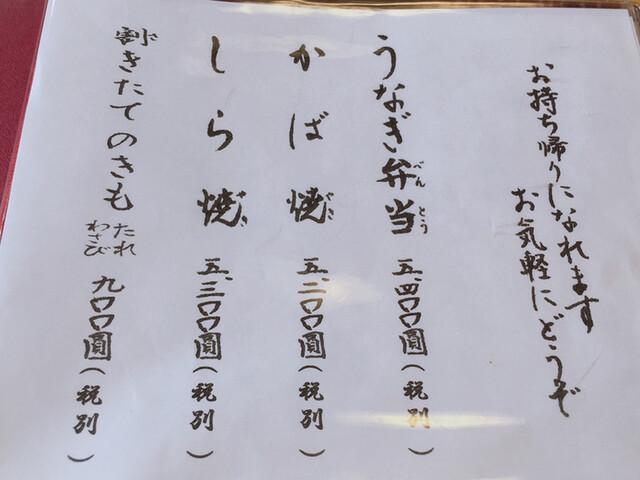 お持ち帰りになれます
お気軽にどうぞ
うなぎ弁当 五、四〇〇圓（税別）
べんとう
かば焼 五、二〇〇圓（税別）
やき
しら焼 五、三〇〇圓（税別）
やき
割きたてのきも たれ わさび 九〇〇圓（税別）